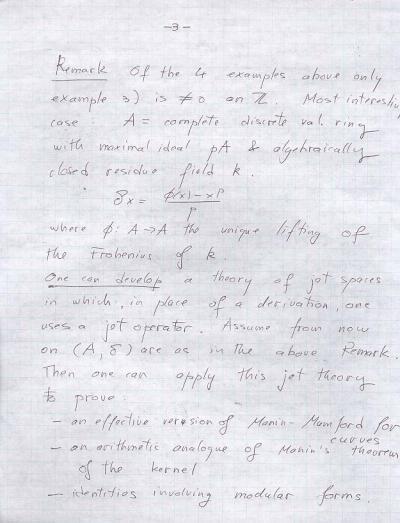 -3-
Remark Of the 4 examples above only
example 3) is ≠ 0 on ℤ. Most interesting
case: A = complete discrete val. ring
with maximal ideal pA & algebraically
closed residue field k.
δx = φ(x) - x^p / p
where φ: A → A the unique lifting of
the Frobenius of k.
One can develop a theory of jet spaces
in which, in place of a derivation, one
uses a jet operator. Assume from now
on (A, δ) are as in the above Remark.
Then one can apply this jet theory
to prove:
- an effective version of Manin-Mumford for
curves
- an arithmetic analogue of Manin's theorem
of the kernel
- identities involving modular forms.